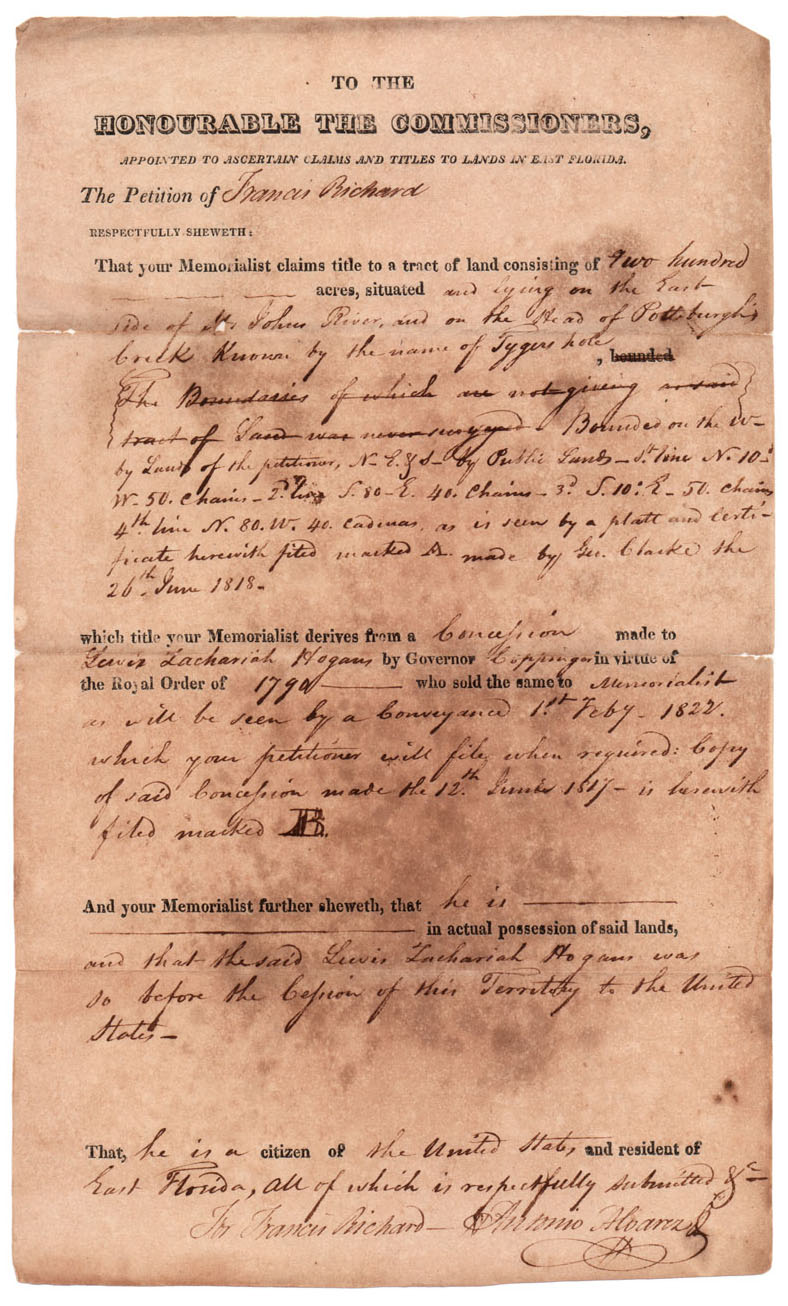 TO THE
HONOURABLE THE COMMISSIONERS,
APPOINTED TO ASCERTAIN CLAIMS AND TITLES TO LANDS IN EAST FLORIDA.
The Petition of Francis Richard
RESPECTFULLY SHEWETH:
That your Memorialist claims title to a tract of land consisting of two hundred
acres, situated and lying on the East
side of St Johns River, and on the Head of Pottsburgh's
Creek Known by the name of Tygers hole, bounded
The Boundaries of which are not giving as said
tract of Land was never surveyed Bounded on the W-
by Lands of the petitioner, N- E. & S- by Public Lands - 1st line N. 10°
W- 50. Chains - 2d line S. 80- E. 40. Chains - 3d S. 10° E- 50. Chains
4th line N. 80. W. 40. Cadenas, as is seen by a platt and Certi-
ficate herewith filed marked A. made by Geo. Clarke the
26th June 1818-
which title your Memorialist derives from a Concession made to
Lewis Zachariah Hogans by Governor Coppinger in virtue of
the Royal Order of 1790 who sold the same to Memorialist
as will be seen by a Conveyance 1st Feby- 1822.
which your petitioner will file when required: Copy
of said Concession made the 12th June 1817- is herewith
filed marked B.
And your Memorialist further sheweth, that he is
in actual possession of said lands,
and that the said Lewis Zachariah Hogans was
so before the Cession of this Territory to the United
States-
That, he is a citizen of the United States and resident of
East Florida, all of which is respectfully submitted &c-
For Francis Richard- Antonio Alvarez